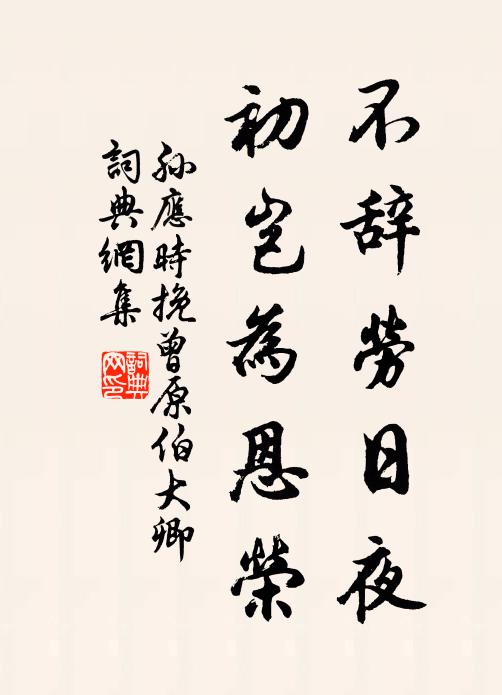 不辞勞日夜
初豈為恩榮
孫應時挽曾原伯大卿
詞典網集
詞典網印